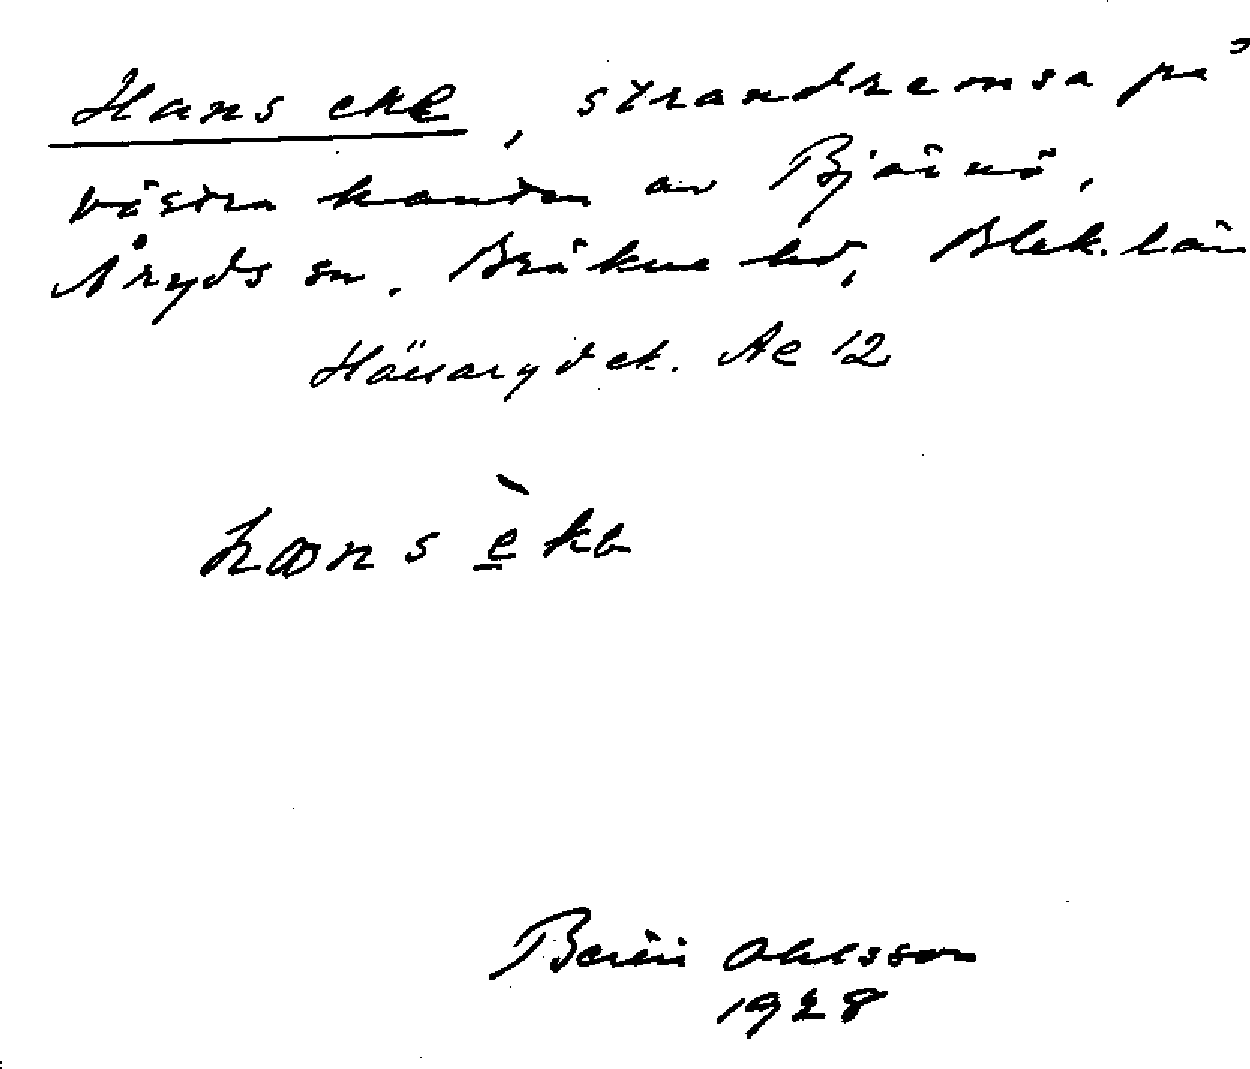 Hans eke, strandremsa på
västra kanten av Bjärnö,
Åryds sn. Bräkne hd, Blek. län
Hällaryd ek. Ae 12
hans èkɐ
Ohlsson
1928